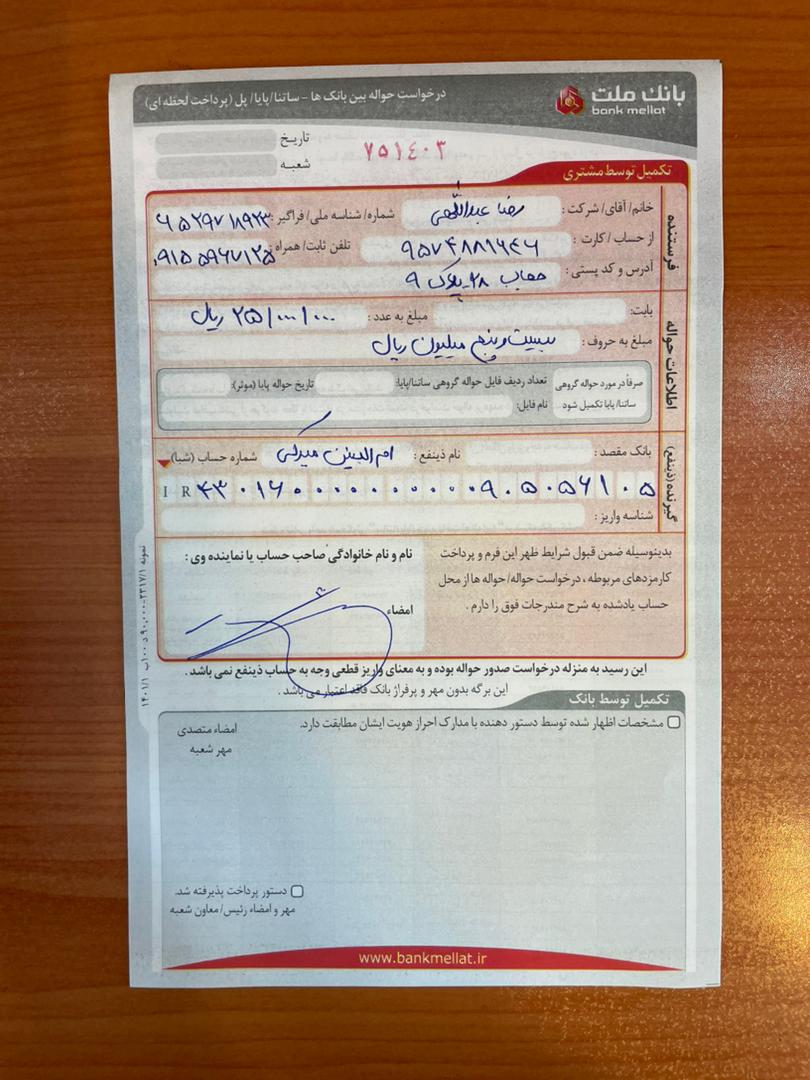 بانک ملت
bank mellat
درخواست حواله بین بانک ها - ساتنا/پایا/ پل (پرداخت لحظه ای)
تاریخ
شعبه
۷۵۱۴۰۳
تکمیل توسط مشتری
فرستنده
خانم/ آقای/ شرکت : رضا عبداللهی شماره/ شناسه ملی/ فراگیر :
از حساب / کارت : ۹۵۷۴۸۸۱۶۴۶ تلفن ثابت/ همراه : ۰۹۱۵۵۹۶۷۱۲۵
آدرس و کد پستی : ۲۸ پلاک ۹
اطلاعات حواله
بابت: مبلغ به عدد : ۲۵/۰۰۰/۰۰۰ ریال
مبلغ به حروف : بیست و پنج میلیون ریال
صرفاً در مورد حواله گروهی ساتنا/ پایا تکمیل شود
تعداد ردیف فایل حواله گروهی ساتنا/پایا: تاریخ حواله پایا (موثر):
نام فایل:
گیرنده (ذینفع)
بانک مقصد : نام ذینفع : ام البنین شماره حساب (شبا)
IR
شناسه واریز :
بدینوسیله ضمن قبول شرایط ظهر این فرم و پرداخت
کارمزدهای مربوطه ، درخواست حواله/ حواله ها از محل
حساب یادشده به شرح مندرجات فوق را دارم .
نام و نام خانوادگی صاحب حساب یا نماینده وی :
امضاء
این رسید به منزله درخواست صدور حواله بوده و به معنای واریز قطعی وجه به حساب ذینفع نمی باشد .
این برگه بدون مهر و پرفراژ بانک فاقد اعتبار می باشد .
تکمیل توسط بانک
مشخصات اظهار شده توسط دستور دهنده با مدارک احراز هویت ایشان مطابقت دارد.
امضاء متصدی
مهر شعبه
دستور پرداخت پذیرفته شد.
مهر و امضاء رئیس/ معاون شعبه
www.bankmellat.ir